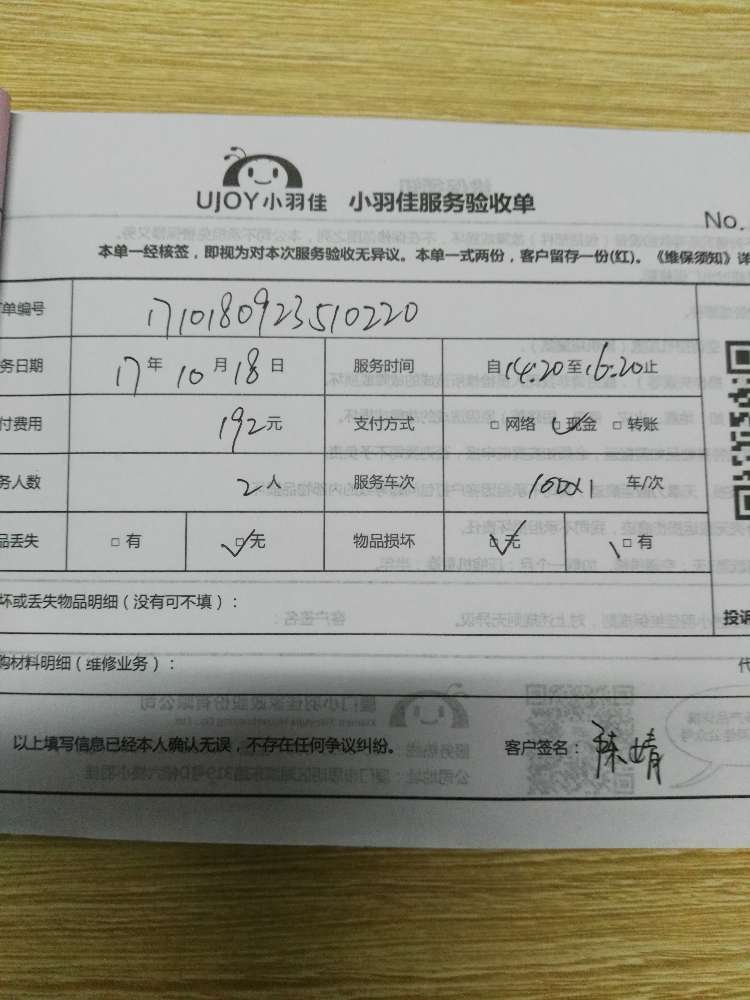 UJOY小羽佳 小羽佳服务验收单
No.
本单一经核签，即视为对本次服务验收无异议。本单一式两份，客户留存一份(红)。《维保须知》详
单编号 1710180923510220
务日期 17年10月18日 服务时间 自14:20至16:20止
付费用 192元 支付方式 □网络 □现金 □转账
务人数 2人 服务车次 车/次
品丢失 □有 □无 物品损坏 □无 □有
坏或丢失物品明细（没有可不填）：
投诉
购材料明细（维修业务）：
以上填写信息已经本人确认无误，不存在任何争议纠纷。 客户签名：陈婧